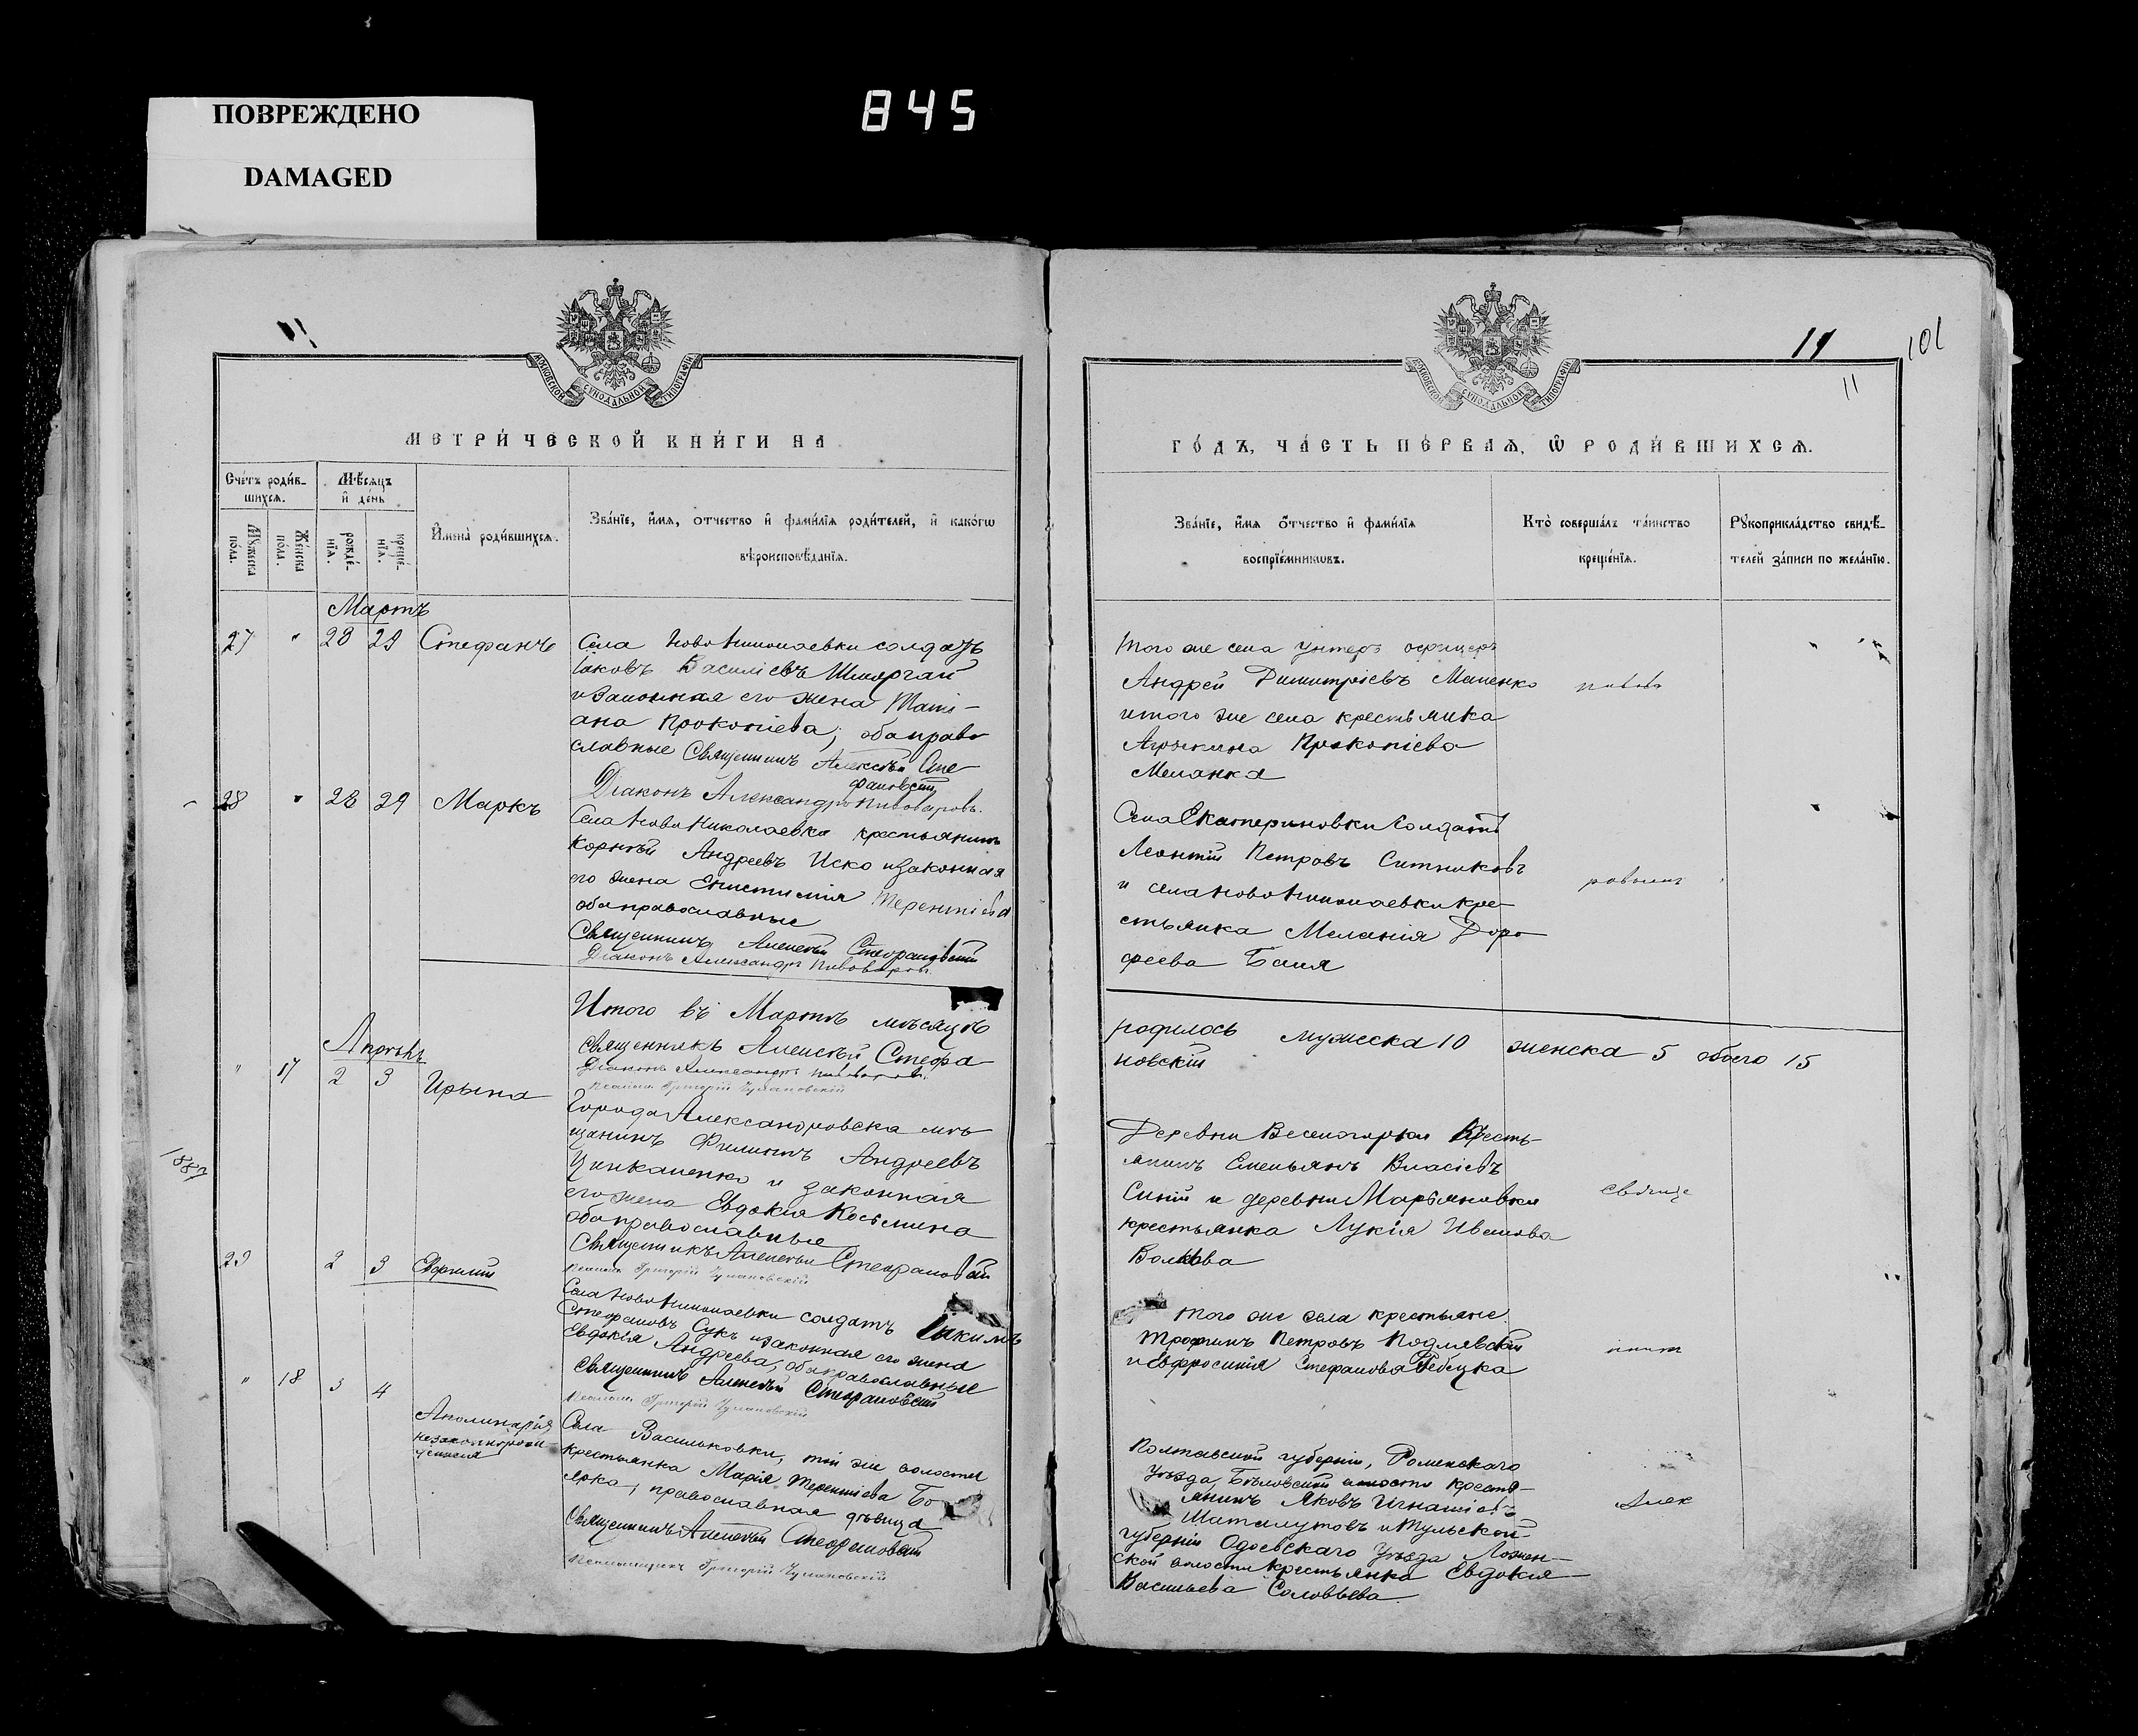 ПОВРЕЖДЕНО
DAMAGED
845
11
МЕТРИ́ЧЕСКОЙ КНИ́ГИ НА
Сче́тъ роди́в-
шихсѧ.
Мѣ́сѧцъ
и҆ де́нь
Мꙋ́жеска
по́ла.
Же́нска
по́ла.
рожде́-
нїѧ.
креще́-
нїѧ.
И҆мена̀ роди́вшихсѧ.
Зва́нїе, и҆́мѧ, ѻ҆тчество и҆ фами́лїѧ роди́телей, и҆ како́гѡ
вѣроисповѣ́данїѧ.
Мартъ
27 " 28 29 Стефанъ
Села Ново Николаевки солдатъ
Іаковъ Василіевъ
и законная его жена Тати-
ана Прокопіева, оба право
славные Священникъ Алексѣй Сте
фановскій
Діаконъ Александръ Пивоваровъ.
28 " 28 29 Маркъ
Села Ново Николаевки крестьянинъ
Корнѣй Андреевъ Иско и законная
его жена Епистимія Терентіева
оба православные
Священникъ Алексѣй Стефановскій
Діаконъ Александръ Пивоваровъ.
Итого въ Мартѣ мѣсяцѣ
Священникъ Алексѣй Стефа
Діаконъ Александръ Пивоваровъ.
Григорій Чулановскій
Апрѣль
" 17 2 3 Ирина
Города Александровска мѣ-
щанинъ Филиппъ Андреевъ
Цинкаленко и законная
его жена Евдокія Косьмина
оба православные
Священникъ Алексѣй Стефановскій
Григорій Чулановскій
1887
29 2 3
Села Ново Николаевки солдатъ Іакимъ
Стефановъ Сукъ и законная его жена
Евдокія Андреева, оба православные
Священникъ Алексѣй Стефановскій
Григорій Чулановскій
" 18 3 4
Аполинарія
незаконнорож-
денная
Села Васильковки, той же волости
крестьянка Марія Терентіева Бо
ярка, православная дѣвица
Священникъ Алексѣй Стефановскій
Псаломщикъ Григорій Чулановскій
11
101
11
ГО́ДЪ, ЧА́СТЬ ПЕ́РВАѦ, Ѡ҆ РОДИ́ВШИХСѦ.
Зва́нїе, и҆́мѧ ѻ҆́тчество и҆ фами́лїѧ
воспрїе́мникѡвъ.
Кто̀ соверша́лъ та́инство
креще́нїѧ.
Рꙋкоприкла́дство свидѣ́-
телей за́писи по жела́нїю.
того же села унтеръ офицеръ
Андрей Димитріевъ Маценко
и того же села крестьянка
Прокопіева
Меланка
Села Екатериновки солдатъ
Леонтій Петровъ Ситниковъ
и села Ново Николаевки кре-
стьянка Меланія Доро
феева
родилось мужеска 10 женска 5 обоего 15
новскій
Деревни Веселогорки Кресть-
янинъ Емельянъ Власіевъ
Синій и деревни Марьяновки
крестьянка Лукія Иванова
Волкова
того же села крестьяне
Трофимъ Петровъ
и Евфросинія Стефанова
Полтавской губерніи, Роменскаго
уѣзда, Бѣловской волости крестья-
янинъ Яковъ Игнатіевъ
Шаталутовъ и Тульской
губерніи Одоевскаго уѣзда
ской волости крестьянка Евдокія
Васильева Соловьева.